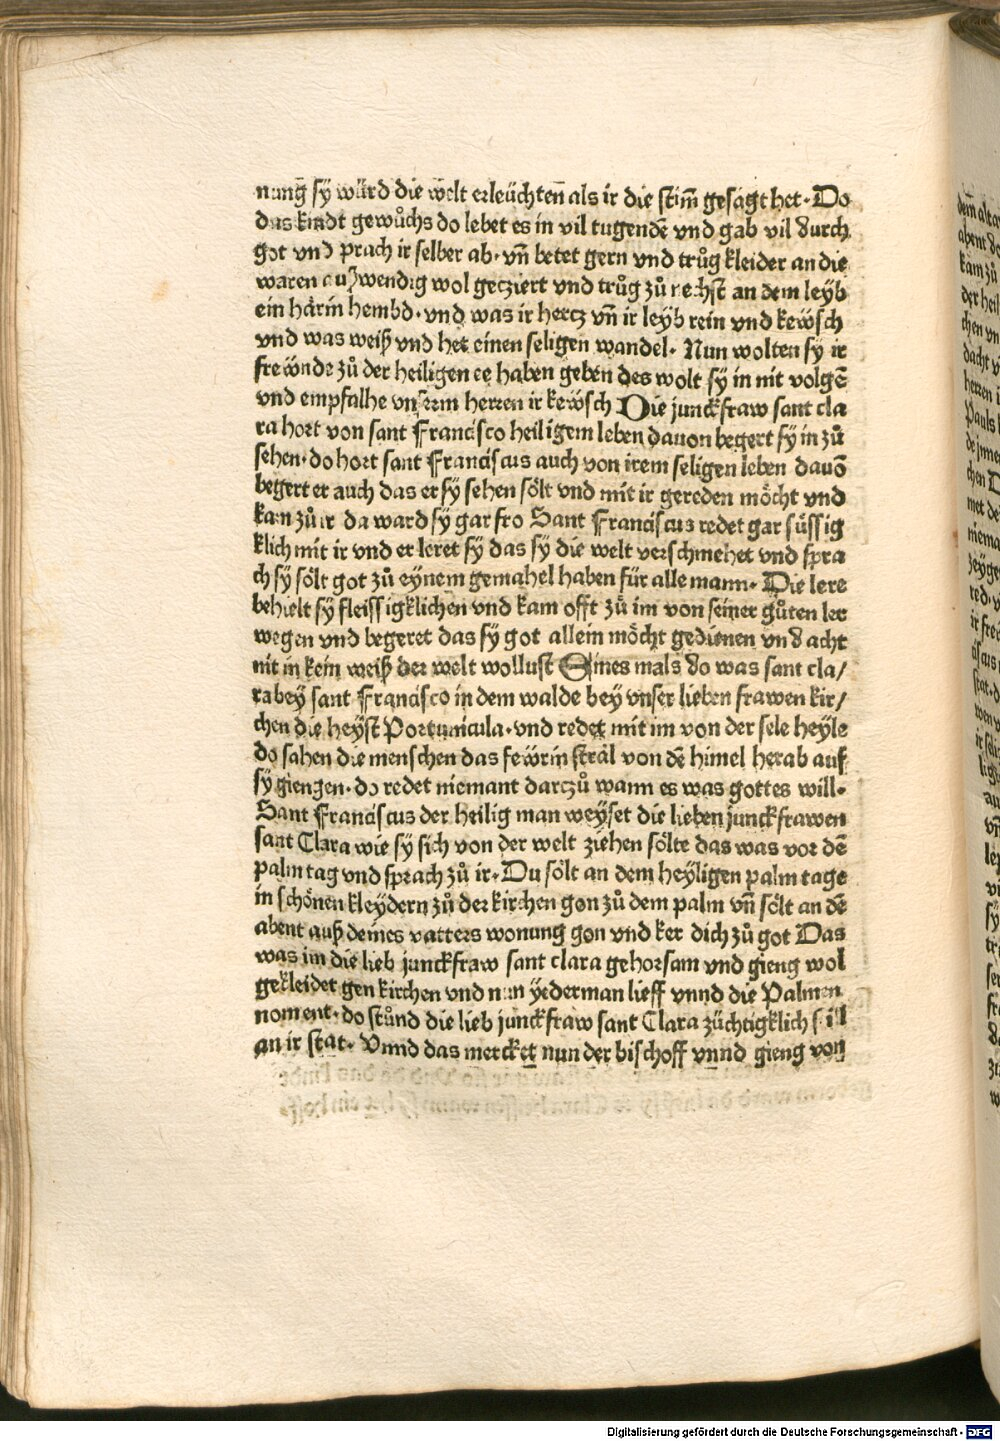 nung̃ sy würd die welt erleüchten̄ als ir die stim̄ gesagt het· Do
das kindt gewůchs do lebet es in vil tugendē vnd gab vil durch
got vnd prach ir selber ab· vn̄ betet gern vnd trůg kleider an die
waren außwendig wol gecziert vnd trůg zů rechst an dem leyb
ein härin hembd· vnd was ir hercz vn̄ ir leyb rein vnd kewsch
vnd was weiß vnd het einen seligen wandel· Nun wolten sy ir
frewnde zů der heiligen ee haben geben des wolt sy in nit volgē
vnd empfalhe vnserm herren ir kewsch Die junckfraw sant cla
ra hort von sant Francisco heiligem leben dauon begert sy in zů
sehen· do hort sant Franciscus auch von irem seligen leben dauō
begert er auch das er sy sehen sölt vnd mit ir gereden möcht vnd
kam zů ir da ward sy gar fro Sant Franciscus redet gar süssig
klich mit ir vnd er leret sy das sy die welt verschmehet vnd spra
ch sy sölt got zů eynem gemahel haben für alle mann· Die lere
behielt sy fleissigklichen vnd kam offt zů im von seiner gůten ler
wegen vnd begeret das sy got allein möcht gedienen vnd acht
nit in kein weiß der welt wollust Eines mals do was sant cla/
ra bey sant Francisco in dem walde bey vnser lieben frawen kir/
chen die heyst Portuncula· vnd redet mit im von der sele heyle
do sahen die menschen das fewrin sträl von dē himel herab auf
sy giengen· do redet niemant darczů wann es was gottes will·
Sant Franciscus der heilig man weyset die lieben junckfrawen
sant Clara wie sy sich von der welt ziehen sölte das was vor dē
palm tag vnd sprach zů ir· Du sölt an dem heyligen palm tage
in schönen kleydern zů der kirchen gon zů dem palm vn̄ sölt an dē
abent auß deines vatters wonung gon vnd ker dich zů got Das
was im die lieb junckfraw sant clara gehorsam vnd gieng wol
gekleidet gen kirchen vnd nun yederman lieff vnnd die Palmen
noment· do stůnd die lieb junckfraw sant Clara züchtigklich stil
an ir stat· Vnnd das mercket nun der bischoff vnnd gieng von
Digitalisierung gefördert durch die Deutsche Forschungsgemeinschaft - DFG